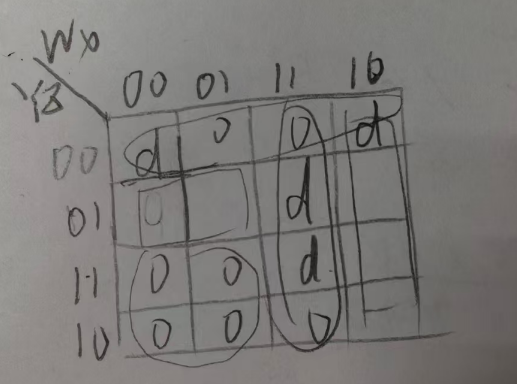 WX
YZ
00 01 11 10
00 d 0 0 d
01 0 d
11 0 0 d
10 0 0 0